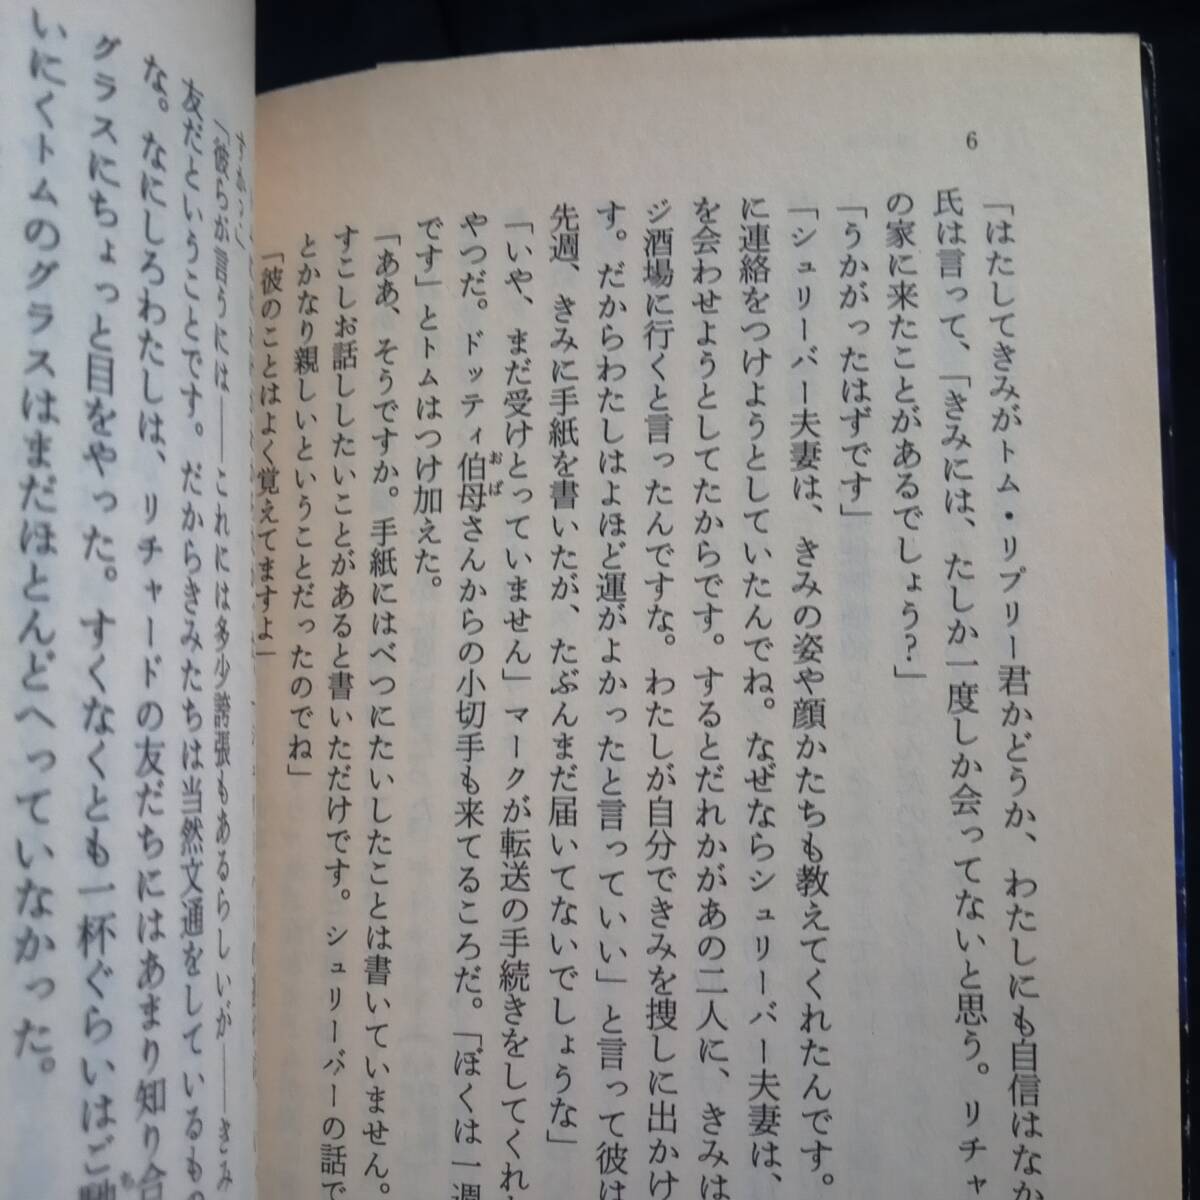 6
「はたしてきみがトム・リプリー君かどうか、わたしにも自信はなか
氏は言って、「きみには、たしか一度しか会ってないと思う。リチャ
の家に来たことがあるでしょう？」
「うかがったはずです」
「シュリーバー夫妻は、きみの姿や顔かたちも教えてくれたんです。
に連絡をつけようとしていたんでね。なぜならシュリーバー夫妻は、
を会わせようとしてたからです。するとだれかがあの二人に、きみは
ジ酒場に行くと言ったんですな。わたしが自分できみを捜しに出かけ
す。だからわたしはよほど運がよかったと言っていい」と言って彼は
先週、きみに手紙を書いたが、たぶんまだ届いてないでしょうな」
「いや、まだ受けとっていません」マークが転送の手続きをしてくれ
やつだ。ドッティ伯母さんからの小切手も来てるころだ。「ぼくは一週
おば
です」とトムはつけ加えた。
「ああ、そうですか。手紙にはべつにたいしたことは書いていません。
すこしお話ししたいことがあると書いただけです。シュリーバーの話で
とかなり親しいということだったのでね」
「彼のことはよく覚えてますよ」
「彼らが言うには――これには多少誇張もあるらしいが――きみ
友だということです。だからきみたちは当然文通をしているもの
な。なにしろわたしは、リチャードの友だちにはあまり知り合
グラスにちょっと目をやった。すくなくとも一杯ぐらいはご馳
ち
いにくトムのグラスはまだほとんどへっていなかった。